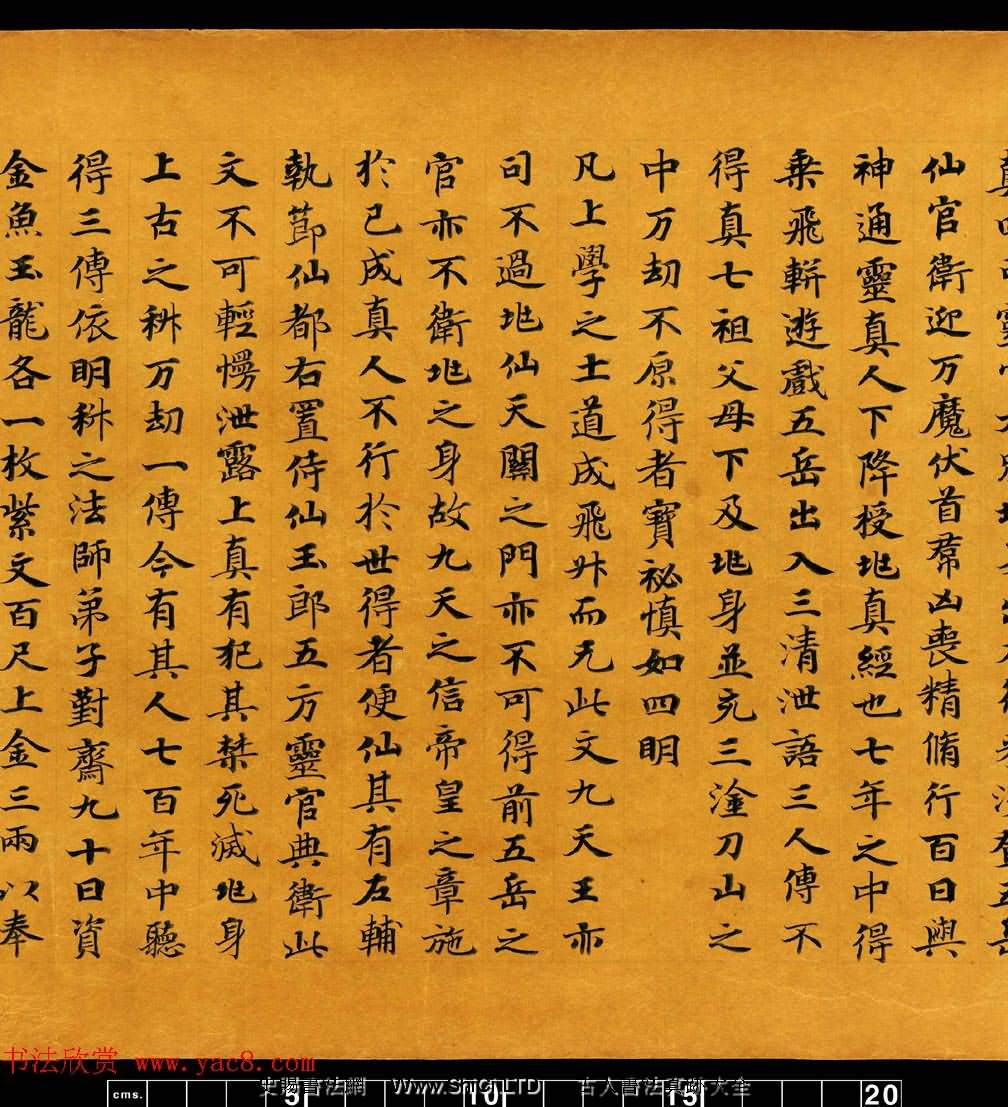 仙官衛迎万魔伏首羣凶喪精脩行百日與
神通靈真人下降授兆真經也七年之中得
乗飛軿遊戲五岳出入三清泄語三人傳不
得真七祖父母下及兆身並充三塗刀山之
中万劫不原得者寶祕慎如四明
凡上學之士道成飛昇而无此文九天王亦
司不過地仙天關之門亦不可得前五岳之
官亦不衛兆之身故九天之信帝皇之章施
於已成真人不行於世得者便仙其有左輔
執節仙都右置侍仙玉郎五方靈官典衛此
文不可輕慢泄露上真有犯其禁死滅兆身
上古之科万劫一傳今有其人七百年中聽
得三傳依明科之法師弟子對齋九十日資
金魚玉龍各一枚紫文百尺上金三兩以奉
书法欣赏 www.yac8.com
史賜書法網 Www.Shici.LTD 古人書法真跡大全
cms. 5 10 15 20